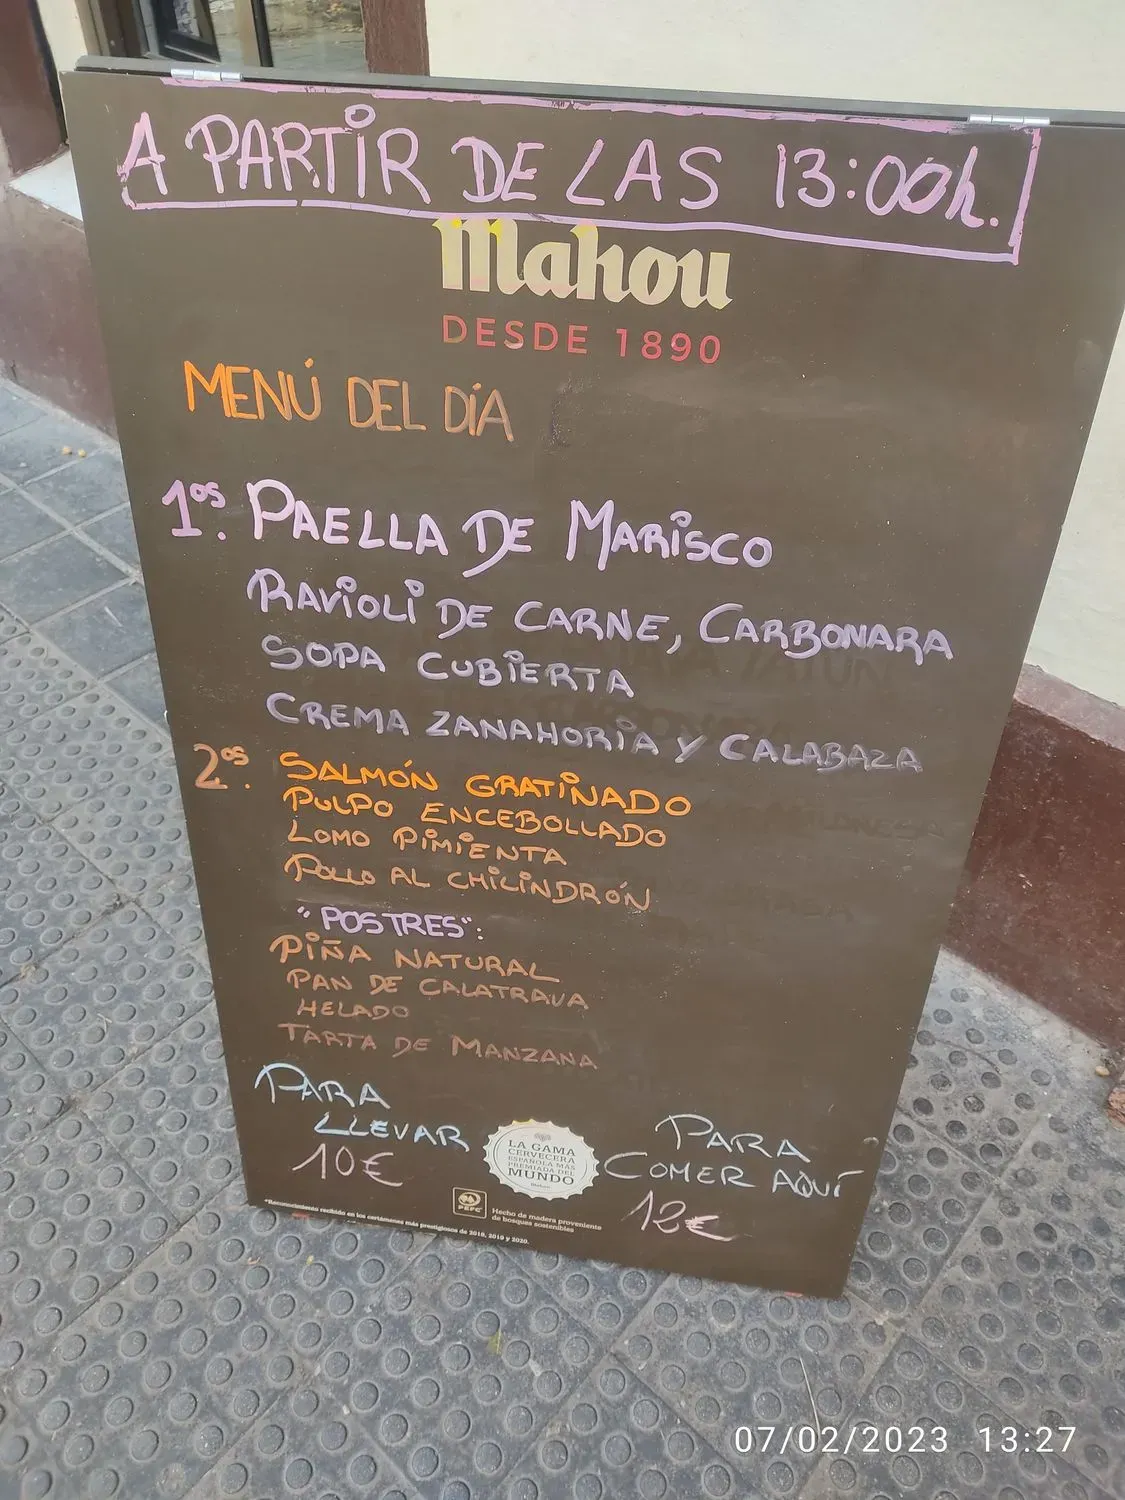 A PARTIR DE LAS 13:00h.
Mahou
DESDE 1890
MENÚ DEL DÍA
1os. PAELLA DE MARISCO
RAVIOLI DE CARNE, CARBONARA
SOPA CUBIERTA
CREMA ZANAHORIA Y CALABAZA
2os. SALMÓN GRATINADO
PULPO ENCEBOLLADO
LOMO PIMIENTA
POLLO AL CHILINDRÓN
"POSTRES":
PIÑA NATURAL
PAN DE CALATRAVA
HELADO
TARTA DE MANZANA
PARA
LLEVAR
10€
LA GAMA
CERVECERA
ESPAÑOLA MÁS
PREMIADA DEL
MUNDO
Mahou
PARA
COMER AQUÍ
12€
PEFC
Hecho de madera proveniente
de bosques sostenibles
*Reconocimiento recibido en los certámenes más prestigiosos de 2018, 2019 y 2020.
07/02/2023 13:27